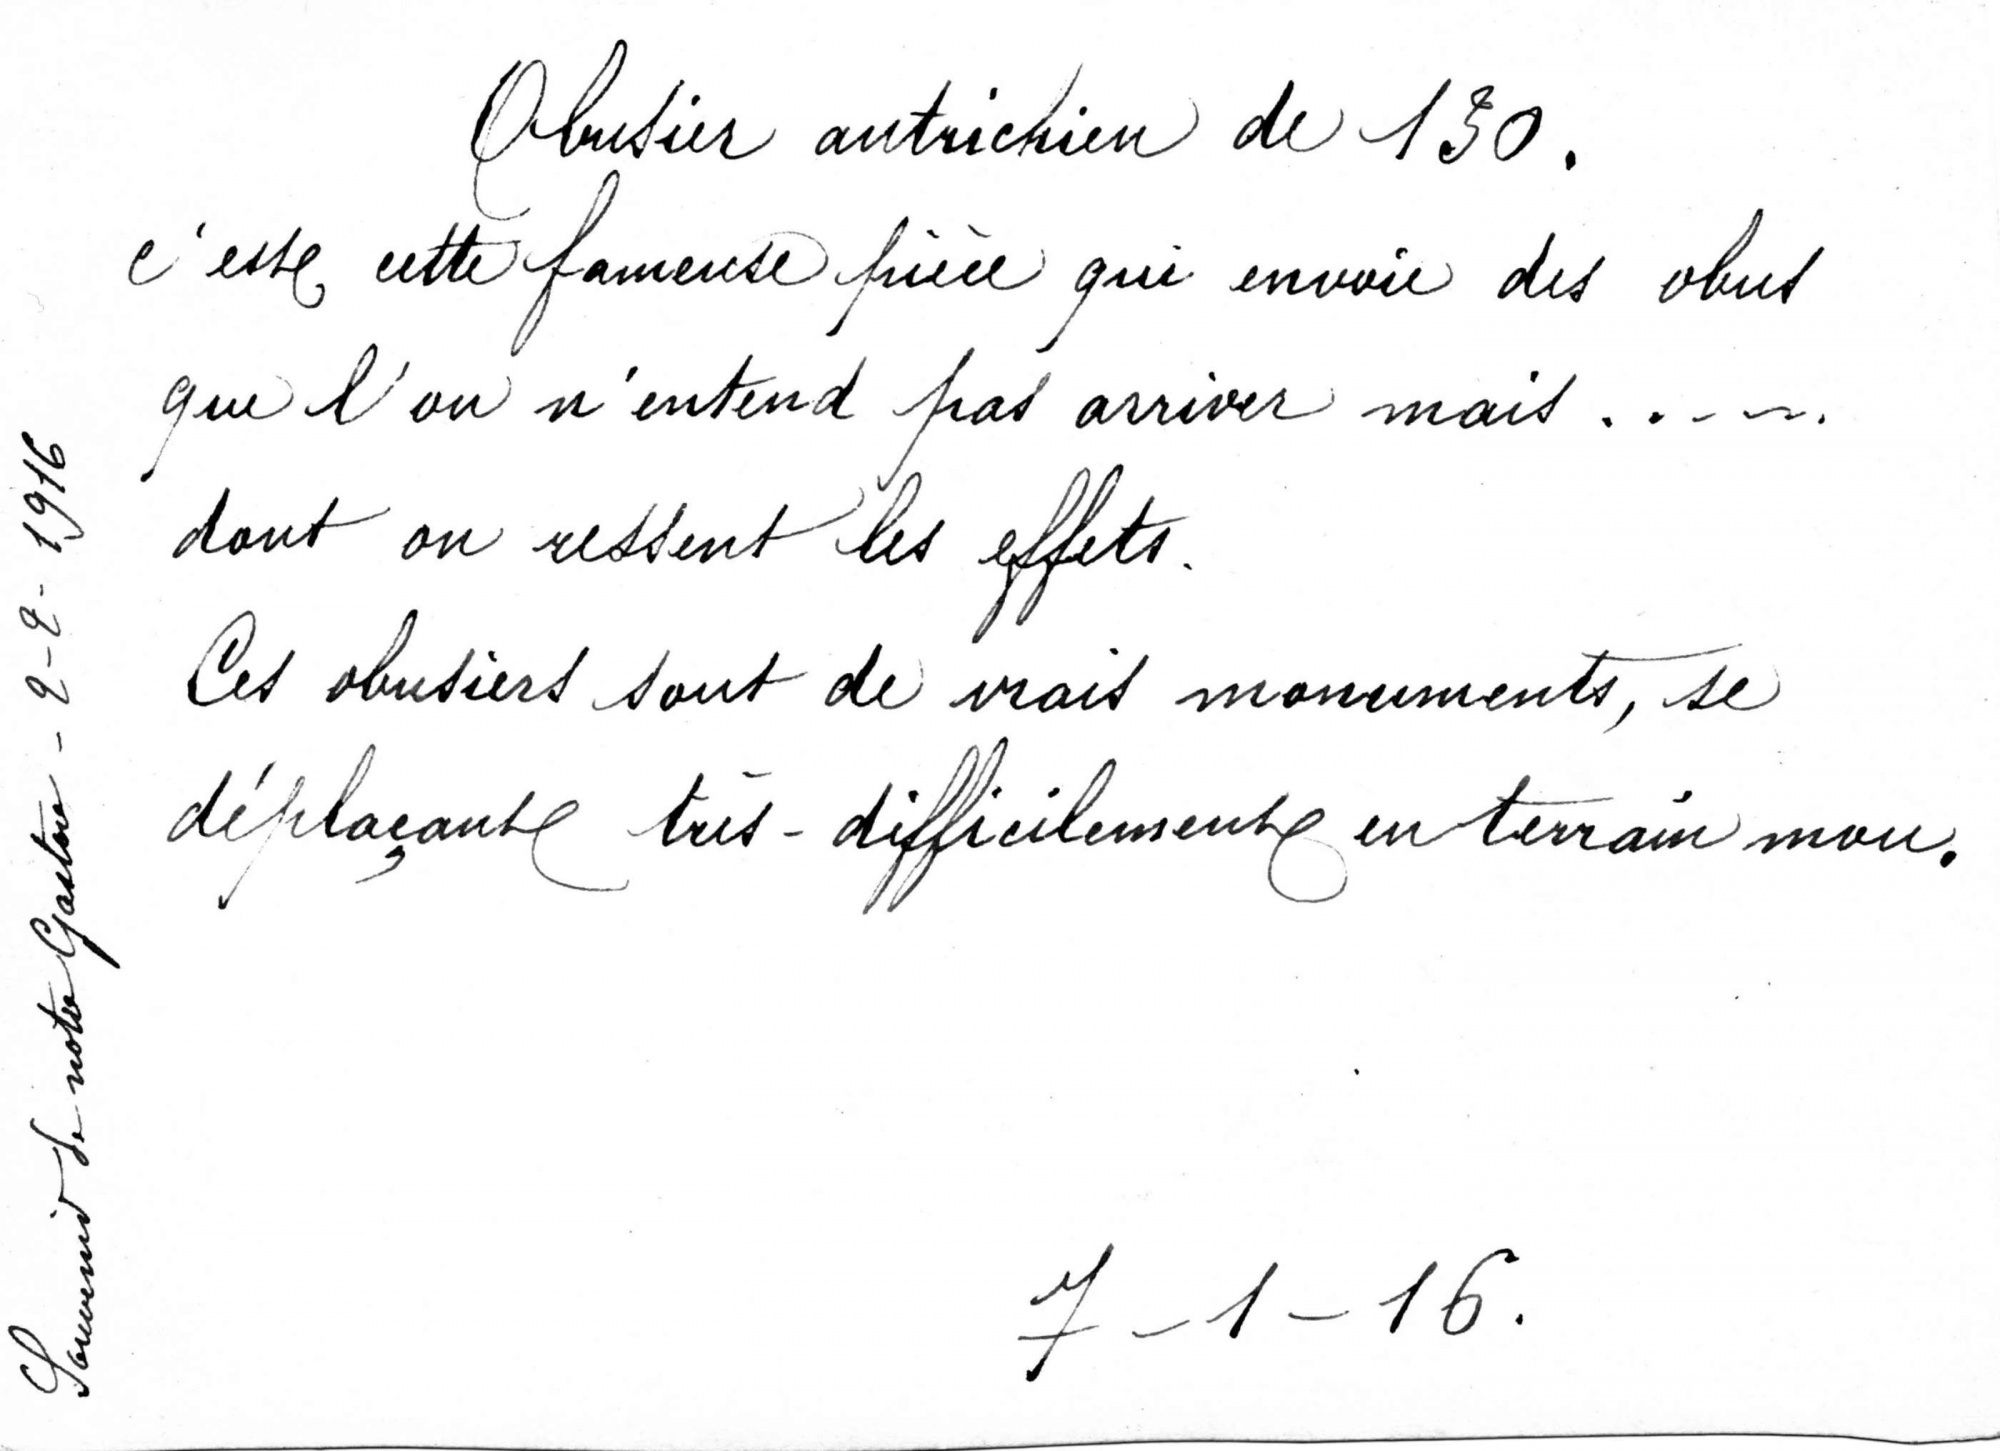 Obusier autrichien de 130.
c'est cette fameuse pièce qui envoie des obus
que l'on n'entend pas arriver mais . . - ~.
dont on ressent les effets.
Ces obusiers sont de vrais monuments, se
déplaçant très-difficilement en terrain mou.
7-1-16.
Souvenir de notre Gaston - 2-2-1916